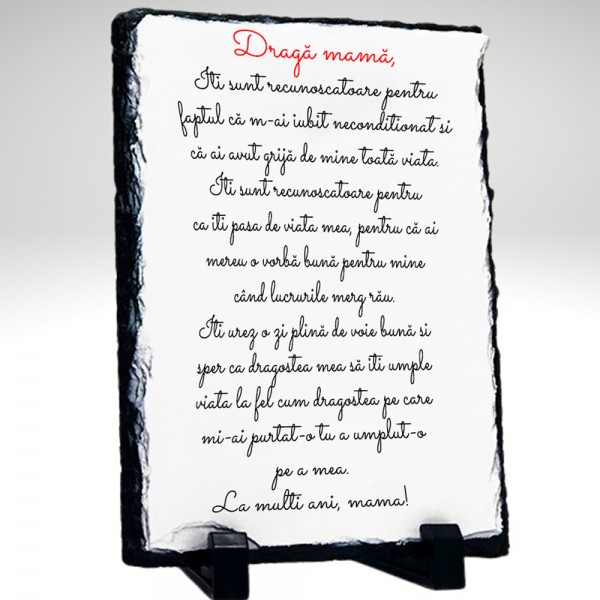 Dragă mamă,
Iti sunt recunoscatoare pentru
faptul că m-ai iubit neconditionat si
că ai avut grijă de mine toată viata.
Iti sunt recunoscatoare pentru
ca iti pasa de viata mea, pentru că ai
mereu o vorbă bună pentru mine
când lucrurile merg rău.
Iti urez o zi plină de voie bună si
sper ca dragostea mea să iti umple
viata la fel cum dragostea pe care
mi-ai purtat-o tu a umplut-o
pe a mea.
La multi ani, mama!